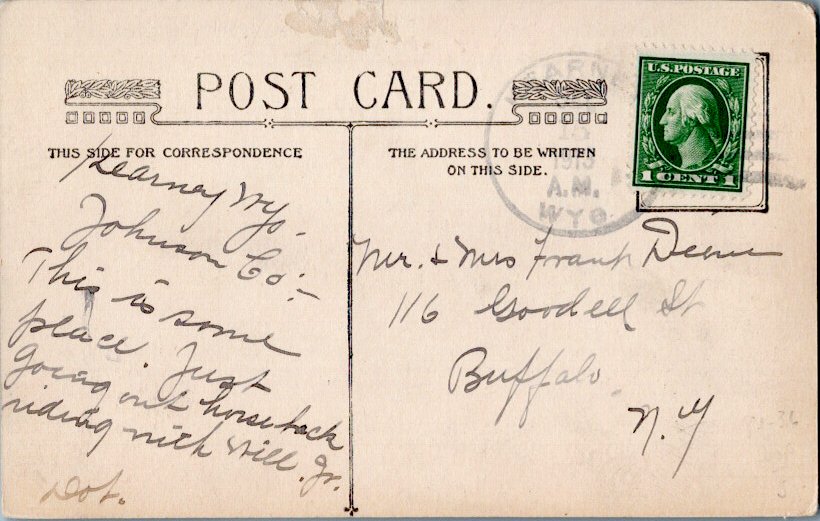 POST CARD.
THIS SIDE FOR CORRESPONDENCE
THE ADDRESS TO BE WRITTEN
ON THIS SIDE.
KEARNEY
1913
A.M.
WYO.
U.S. POSTAGE
1 CENT 1
Kearney Wyo.
Johnson Co:—
This is some
place. Just
Going out horseback
riding with Will. Jr.
Dot.
Mr. & Mrs Frank
116 Goodell St
Buffalo.
N.Y